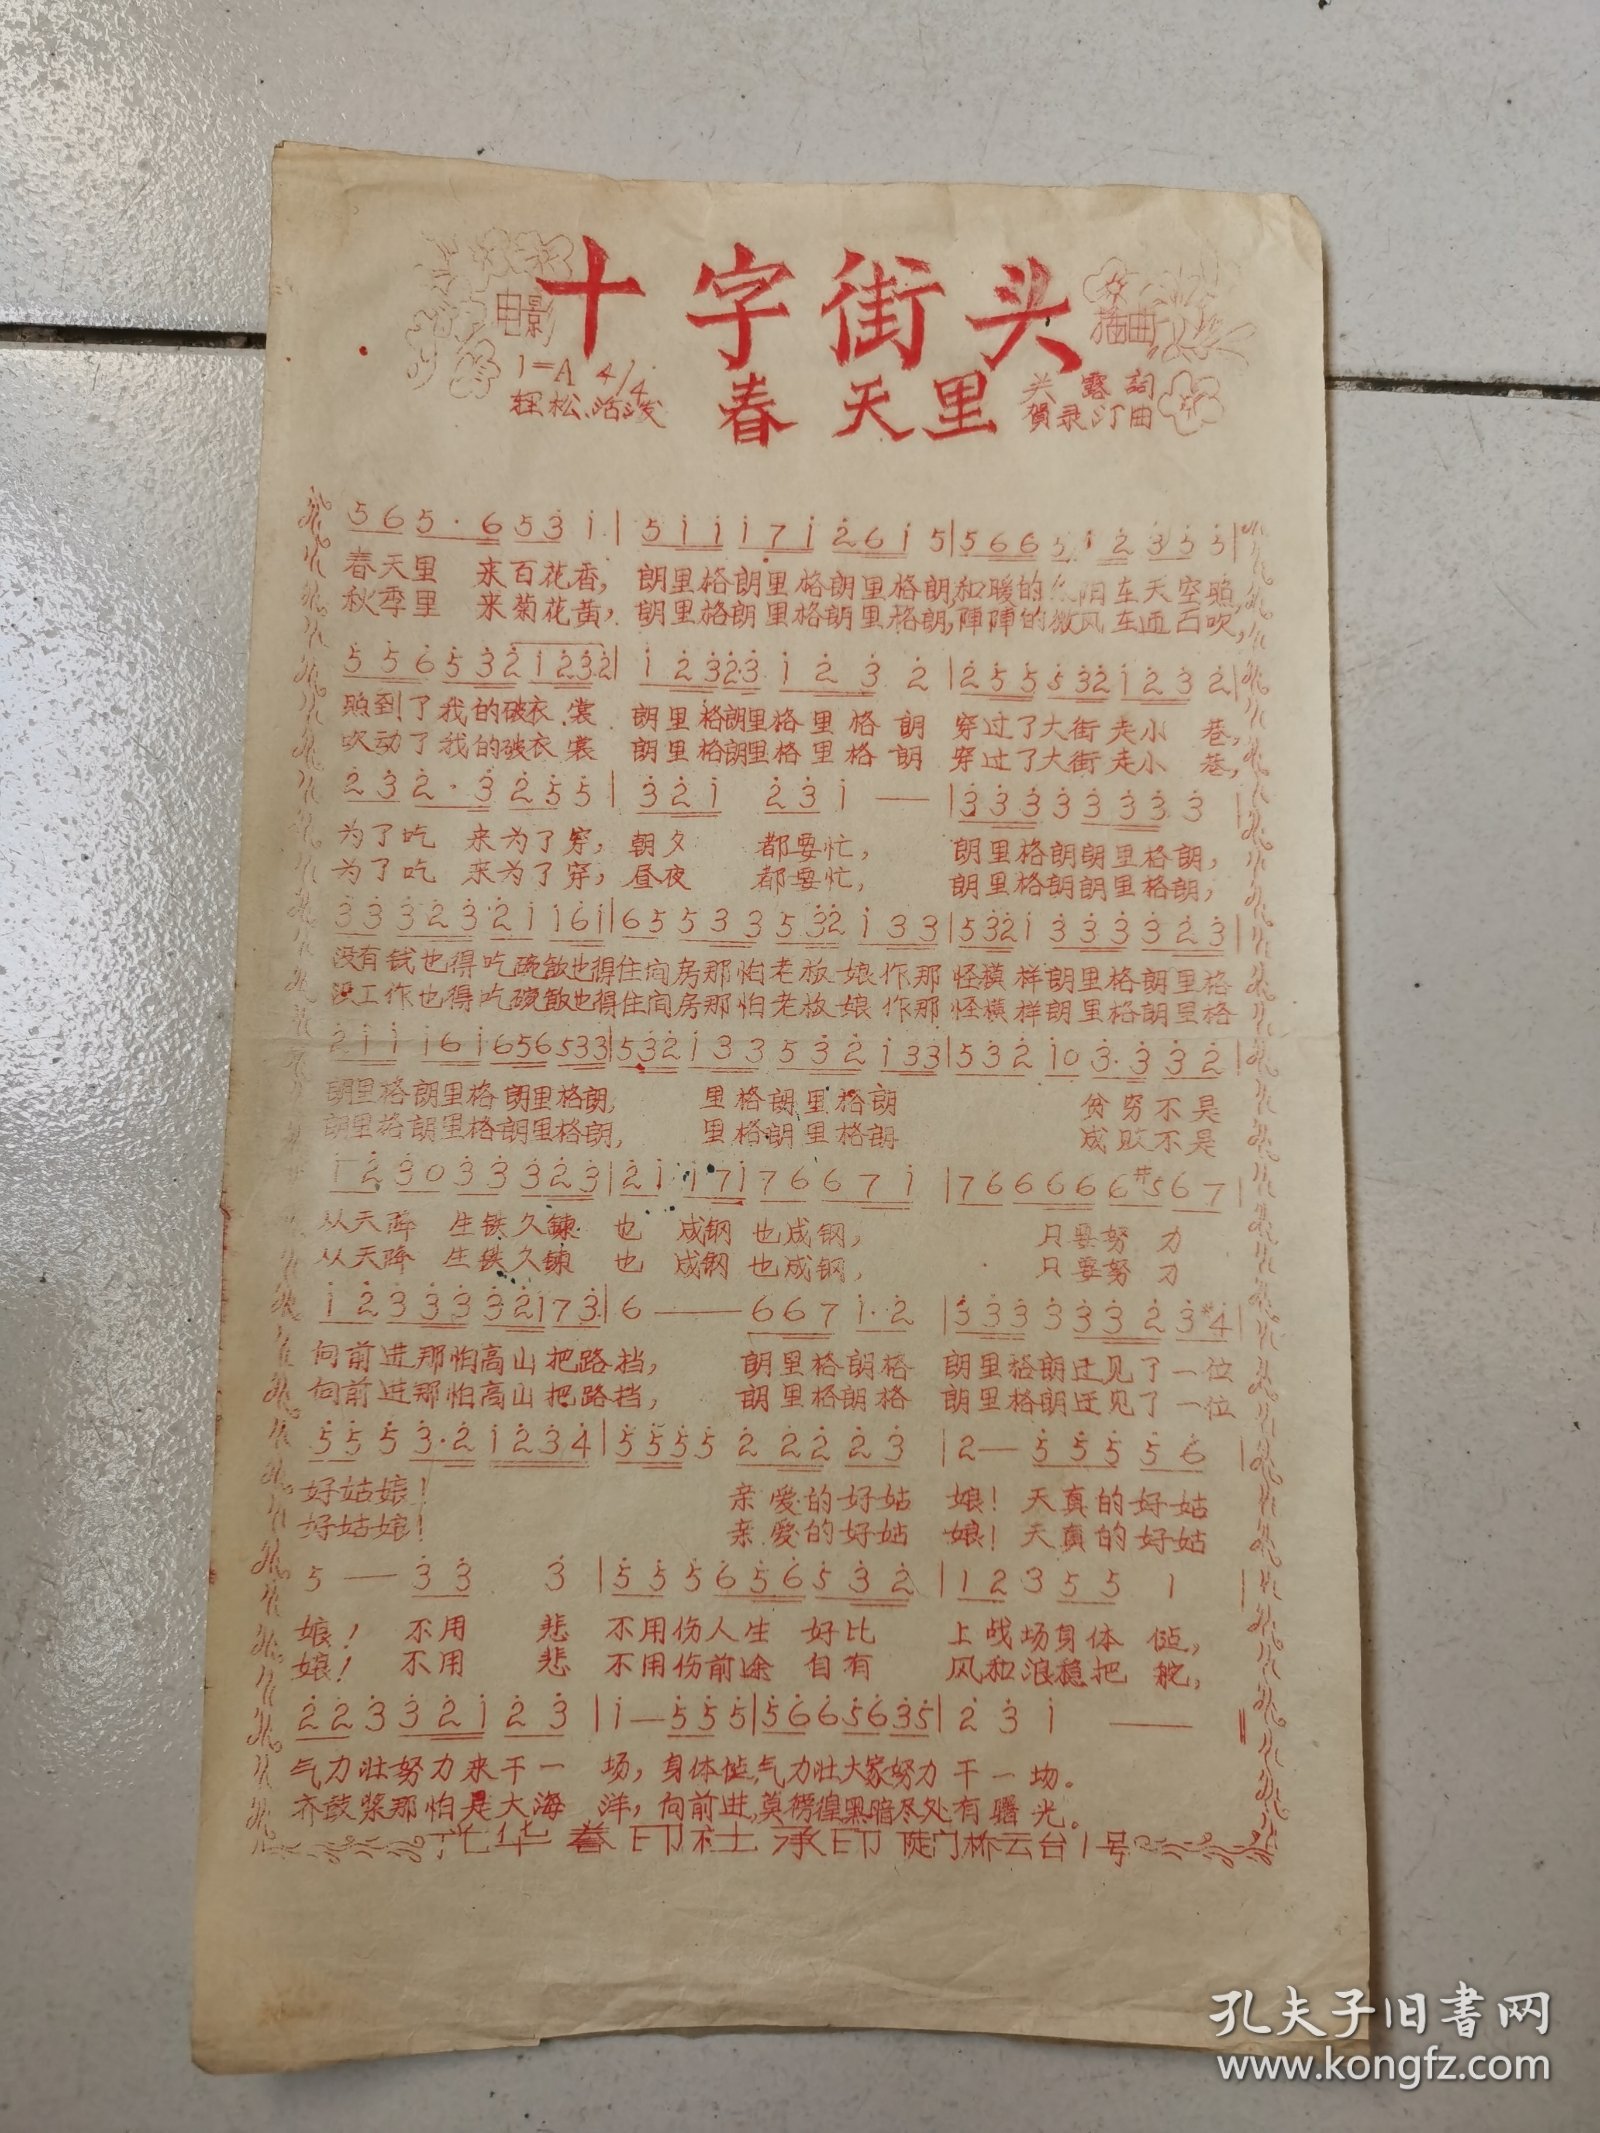 电影 十字街头 插曲
1=A 4/4
轻松、活泼
春天里
关露詞
賀录汀曲
5 6 5 · 6 5 3 1 | 5 1 1 1 7 1 2 6 1 5 | 5 6 6 5 1 2 3 5 5 |
春天里 来百花香, 朗里格朗里格朗里格朗,和暖的 阳在天空照,
秋季里 来菊花黄, 朗里格朗里格朗里格朗,陣陣的微风在迎面吹,
5 5 6 5 3 2 1 2 3 2 | 1 2 3 2 3 1 2 3 2 | 2 5 5 5 3 2 1 2 3 2 |
照到了我的破衣裳 朗里格朗里格里格朗 穿过了大街走小 巷,
吹动了我的破衣裳 朗里格朗里格里格朗 穿过了大街走小 巷,
2 3 2 · 3 2 5 5 | 3 2 1 2 3 1 — | 3 3 3 3 3 3 3 3
为了吃 来为了穿, 朝夕 都要忙, 朗里格朗朗里格朗,
为了吃 来为了穿, 昼夜 都要忙, 朗里格朗朗里格朗,
3 3 3 2 3 · 2 1 1 6 1 | 6 5 5 3 3 5 3 2 1 3 3 | 5 3 2 1 3 3 3 3 2 3 |
没有钱也得吃碗飯也得住间房那怕老板娘作那怪模样朗里格朗里格
没工作也得吃碗飯也得住间房那怕老板娘作那怪模样朗里格朗里格
2 1 1 1 6 1 6 5 6 5 3 3 | 5 3 2 1 3 3 5 3 2 1 3 3 | 5 3 2 1 0 3 · 3 3 2 |
朗里格朗里格朗里格朗, 里格朗里格朗 贫穷不是
朗里格朗里格朗里格朗, 里格朗里格朗 成败不是
1 2 3 0 3 3 3 2 3 | 2 1 · 1 7 1 7 6 6 7 1 | 7 6 6 6 6 6 #5 6 7 |
从天降 生铁久鍊 也 成钢也成钢, 只要努 力
从天降 生铁久鍊 也 成钢也成钢, 只要努 力
1 2 3 3 3 3 2 1 7 3 | 6 — 6 6 7 1 · 2 | 3 3 3 3 3 3 2 3 #4 |
向前进那怕高山把路挡, 朗里格朗格 朗里格朗迂见了一位
向前进那怕高山把路挡, 朗里格朗格 朗里格朗迂见了一位
5 5 5 3 · 2 1 2 3 4 | 5 5 5 5 2 2 2 2 3 | 2 — 5 5 5 5 6 |
好姑娘! 亲爱的好姑 娘! 天真的好姑
好姑娘! 亲爱的好姑 娘! 天真的好姑
5 — 3 3 3 | 5 5 5 6 5 6 5 3 2 | 1 2 3 5 5 1 |
娘! 不用 悲 不用伤人生 好比 上战场身体 ,
娘! 不用 悲 不用伤前途 自有 风和浪穏把 舵,
2 2 3 3 2 1 2 3 | 1 — 5 5 5 | 5 6 6 5 6 3 5 | 2 3 1 — ||
气力壮努力来干一 场, 身体 ,气力壮大家努力干一场。
齐鼓桨那怕是大海 洋, 向前进,莫徬徨黑暗尽处有曙光。
光华 印社承印 陡门桥云台1号
孔夫子旧书网
www.kongfz.com